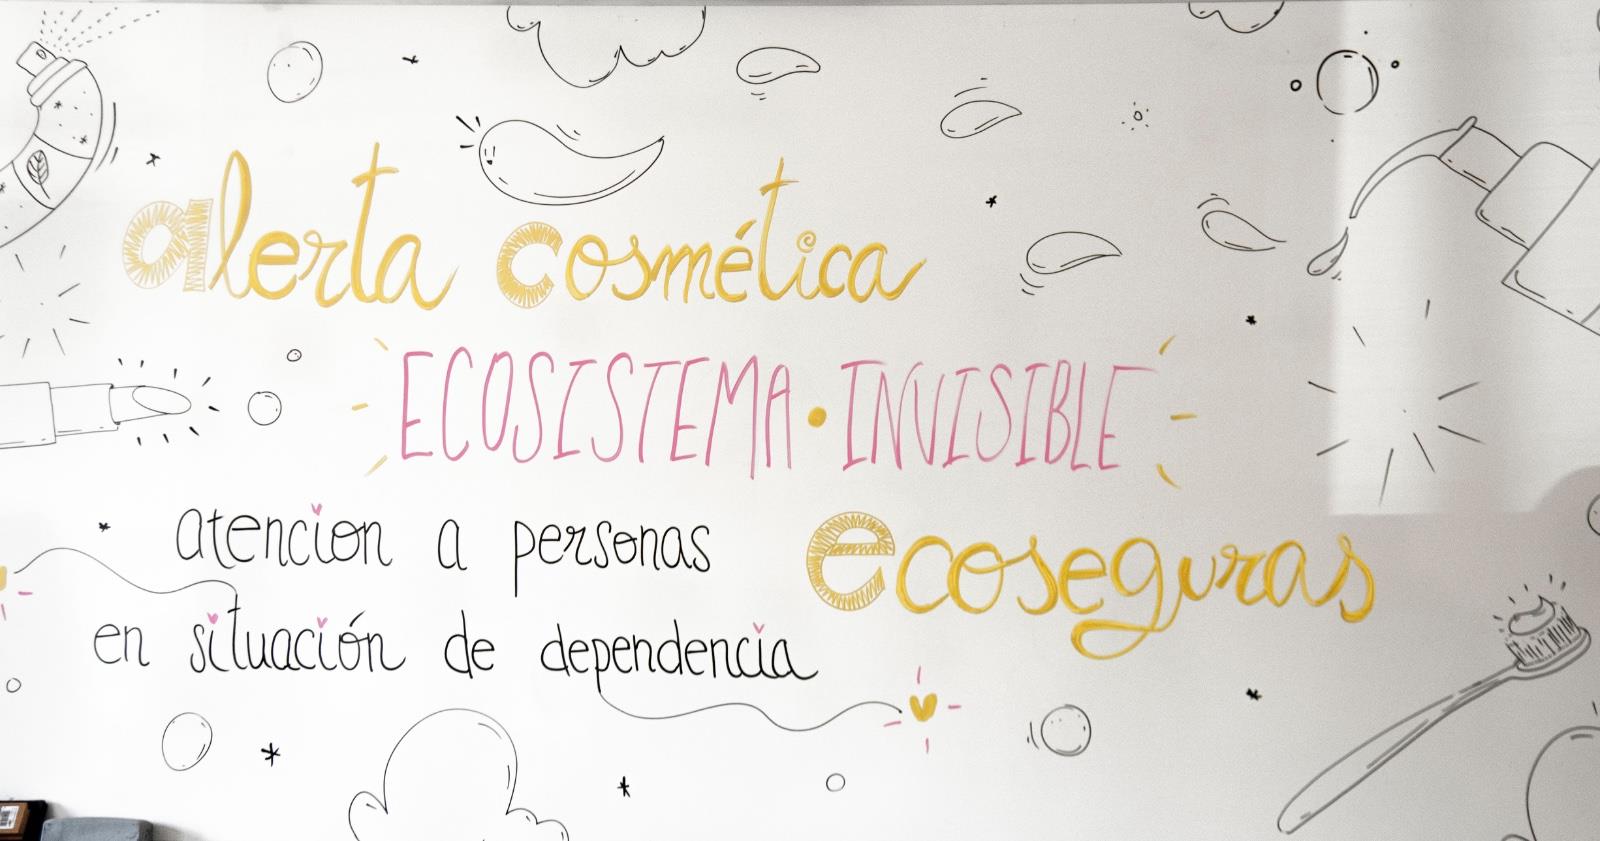 alerta cosmética
ECOSISTEMA • INVISIBLE
atencion a personas
en situación de dependencia
ecoseguras